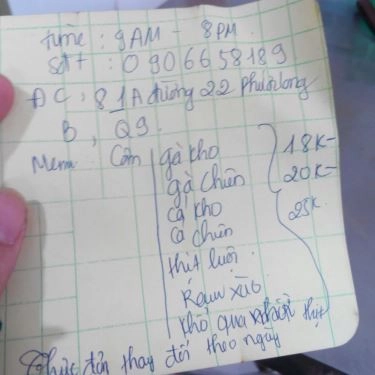 Time : 9AM - 8PM
Sđt : 0906658189
ĐC : 81A đường 22 Phước Long
B, Q9.
Menu : Cơm gà kho 18K
gà chiên 20K
cá kho 25K
cá chiên
thịt luộc
Rau xào
khổ qua thịt
Thực đơn thay đổi theo ngày